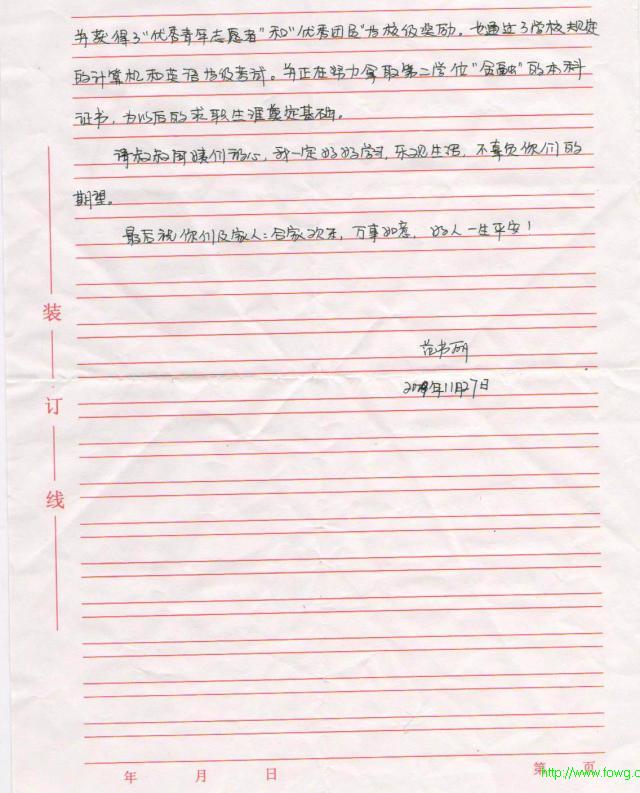 并获得了“优秀青年志愿者”和“优秀团员”等校级奖励。也通过了学校规定
的计算机和英语等级考试。并正在努力拿取第二学位“金融”的本科
证书，为以后的求职生涯奠定基础。
请叔叔阿姨们放心，我一定好好学习，乐观生活，不辜负你们的
期望。
最后祝你们及家人：合家欢乐，万事如意，好人一生平安！
范书丽
年11月27日
装
订
线
年 月 日
第 页
http://www.fowg.c